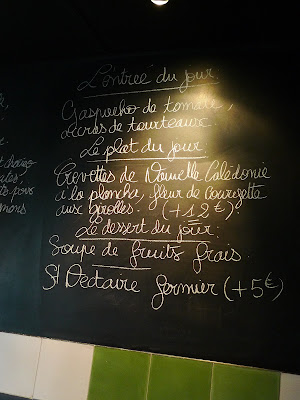 L'entrée du jour
Gaspacho de tomate,
écras de tourteaux.
Le plat du jour.
Crevettes de Nouvelle Calédonie
à la plancha, fleur de courgette
aux girolles. (+12€).
Le dessert du jour:
Soupe de fruits frais.
St Nectaire fermier (+5€)